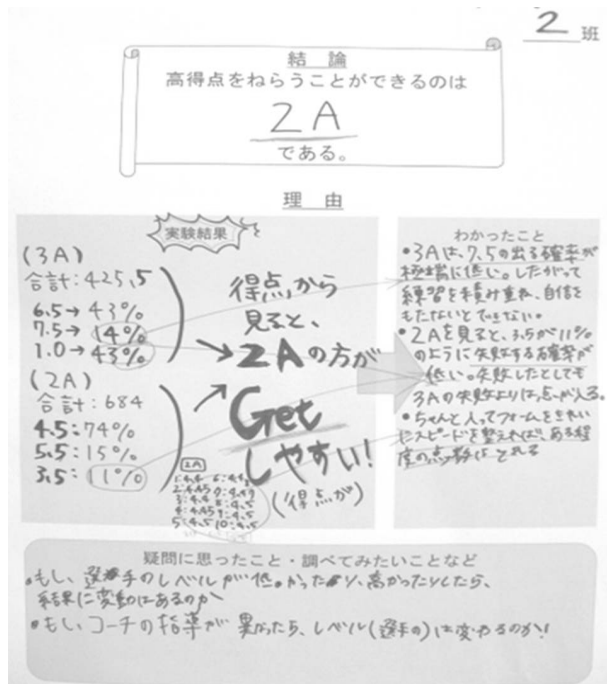 2 班
結 論
高得点をねらうことができるのは
2A
である。
理 由
実験結果
(3A)
合計:425.5
6.5→43%
7.5→14%
1.0→43%
(2A)
合計:684
4.5:74%
5.5:15%
3.5:11%
得点から
見ると、
→2Aの方が
Get
しやすい!
(得点が)
2A
1:4.4 6:4.4
2:4.45
3:4.4 8:4.5
4:4.45 9:4.5
5:4.5 10:4.5
わかったこと
•3Aは、7.5の出る確率が
極端に低い。したがって
練習を積み重ね、自信を
もたないとできない。
•2Aを見ると、3.5が11%
のように失敗する確率が
低い。失敗したとしても
3Aの失敗よりは点が入る。
•ちゃんと入ってフォームをきれい
にスピードを整えれば、ある程
度の点数はとれる
疑問に思ったこと・調べてみたいことなど
•もし、選手のレベルが低かったり、高かったりしたら、
結果に変動はあるのか
•もしコーチの指導が異なったら、レベル(選手の)は変わるのか!